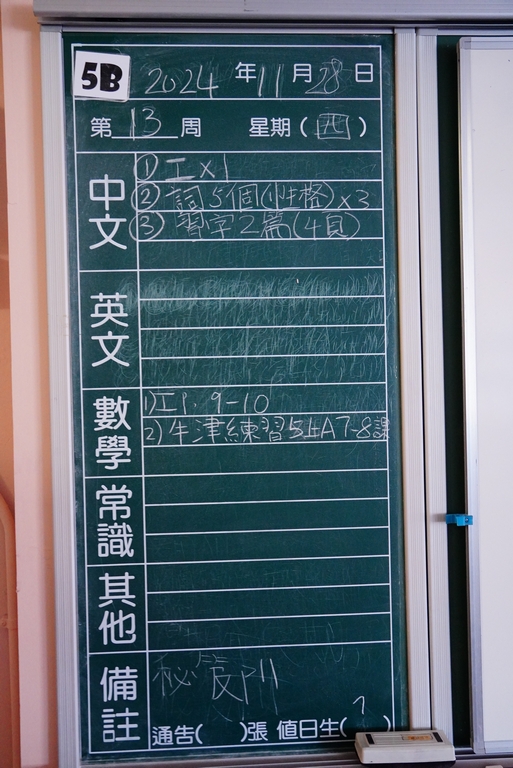 5B 2024 年 11 月 28 日
第 13 周 星期 ( 四 )
中文
① 工 x 1
② 詞 5 個 (性格) x 3
③ 習字 2 篇 (4 頁)
英文
數學
1) 工 P. 9-10
2) 牛津練習 5上A 7-8 課
常識
其他
備註
秘
通告( )張 值日生( ? )